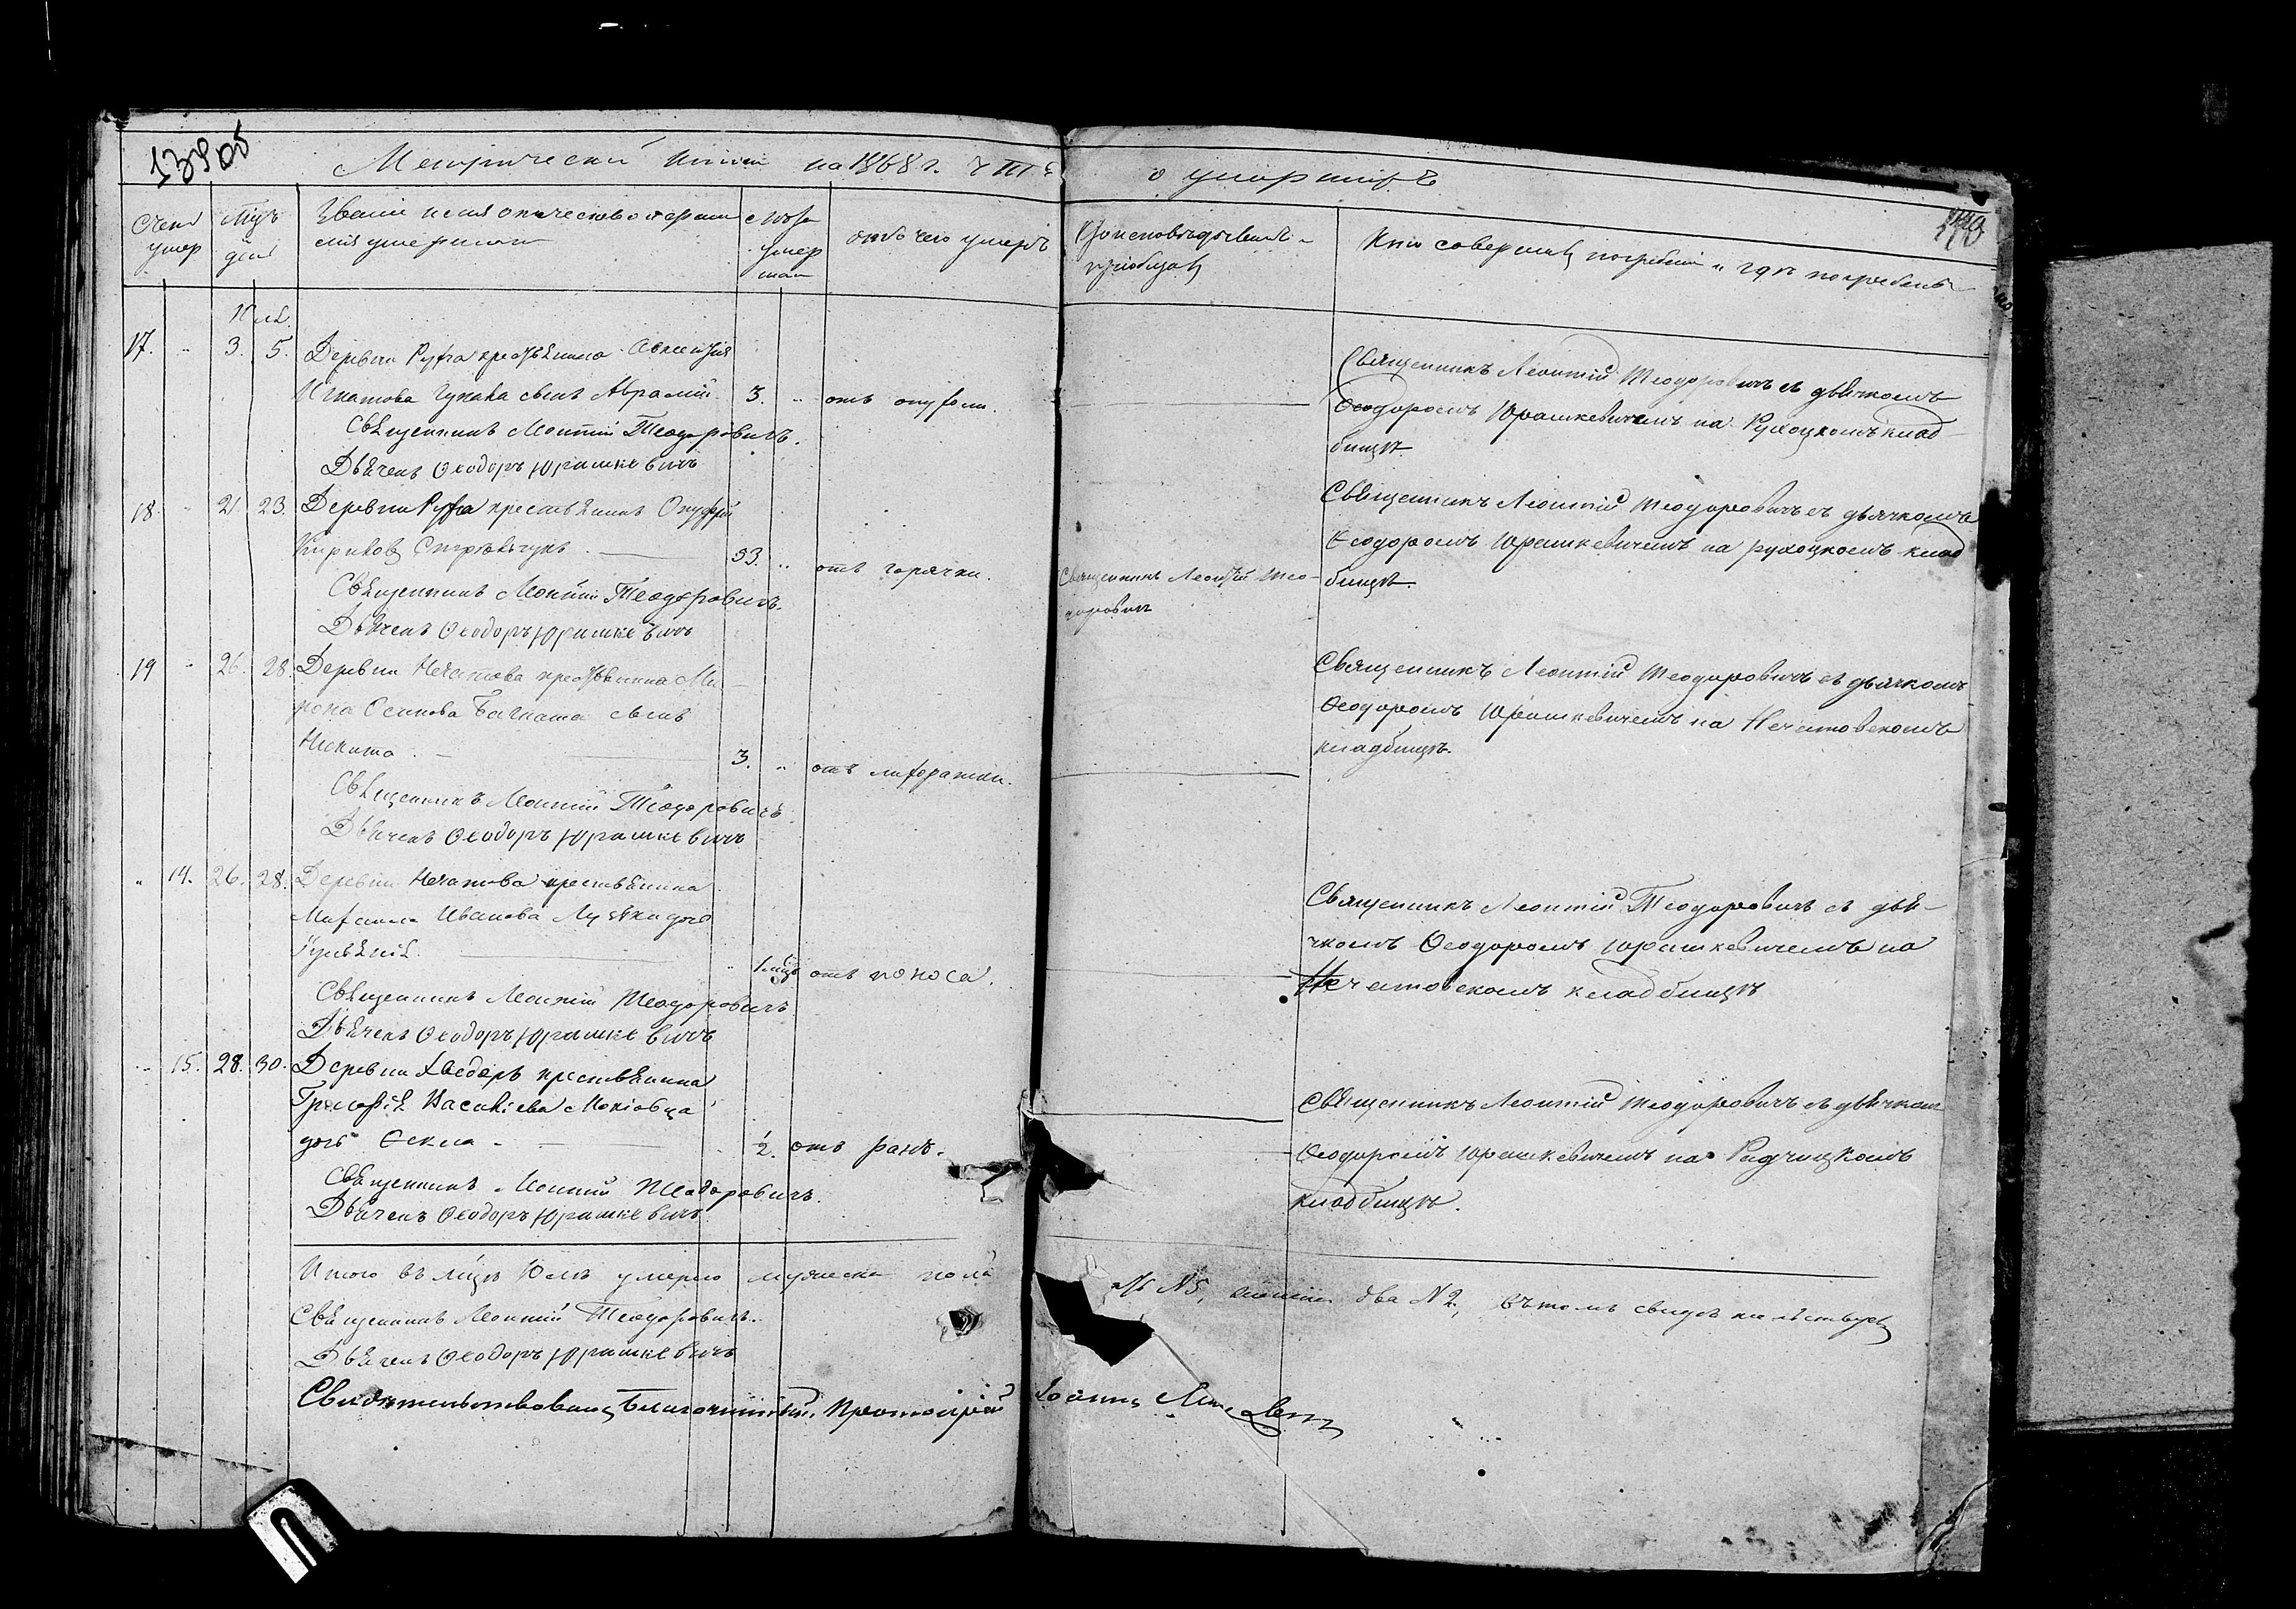 139об
Метрической книги на 1868 г. ч III я
о умершихъ
140
Счетъ умер
Мцъ
дни
Званіе имя отчество и фами
лія умершихъ
Лѣта
умер
шаго
отъ чего умеръ
Кто исповѣдывалъ и
пріобщалъ
Кто совершалъ погребеніе и гдѣ погребены
Июль
17. „ 3. 5. Деревни Рухча крестьянина
Игнатова сынъ Аврамій 3. „ отъ опухоли.
Священникъ Леонтій Теодоровичъ.
Дьячекъ Ѳеодоръ Юрашкевичъ
Священникъ Леонтій Теодоровичъ съ дьячкомъ
Ѳеодоромъ Юрашкевичемъ на Рухоцкомъ клад
бищѣ.
18. „ 21. 23. Деревни Рухча крестьянинъ Онуфрій
Кириковъ 53. „ отъ горячки.
Священникъ Леонтій Теодоровичъ.
Дьячекъ Ѳеодоръ Юрашкевичъ
Священникъ Леонтій Тео-
доровичъ
Священникъ Леонтій Теодоровичъ съ дьячкомъ
Ѳеодоромъ Юрашкевичемъ на рухоцкомъ клад
бищѣ.
19 „ 26. 28. Деревни Нечатова крестьянина Ми-
рона Осипова сынъ
Никита. 3. „ отъ лихорадки.
Священникъ Леонтій Теодоровичъ.
Дьячекъ Ѳеодоръ Юрашкевичъ
Священникъ Леонтій Теодоровичъ съ дьячкомъ
Ѳеодоромъ Юрашкевичемъ на Нечатовскомъ
кладбищѣ.
„ 14. 26. 28. Деревни Нечатова крестьянина
Михаила Иванова дочь
Іуліанія. „ 1 мцъ отъ поноса.
Священникъ Леонтій Теодоровичъ
Дьячекъ Ѳеодоръ Юрашкевичъ
Священникъ Леонтій Теодоровичъ съ дья-
чкомъ Ѳеодоромъ Юрашкевичемъ на
Нечатовскомъ кладбищѣ
„ 15. 28. 30. Деревни Хѳедоръ крестьянина
Григорія Васильева
дочь Ѳекла. 1/2. отъ ранъ.
Священникъ Леонтій Теодоровичъ.
Дьячекъ Ѳеодоръ Юрашкевичъ.
Священникъ Леонтій Теодоровичъ съ дьячком
Ѳеодоромъ Юрашкевичемъ на Радчицкомъ
кладбищѣ.
Итого въ мцѣ Юлѣ умерло мужеска пола
N 3, женска два N 2, въ томъ свидѣтельствуемъ
Священникъ Леонтій Теодоровичъ.
Дьячекъ Ѳеодоръ Юрашкевичъ
Свидѣтельствовалъ Благочинный, Протоіерей Іоаннъ